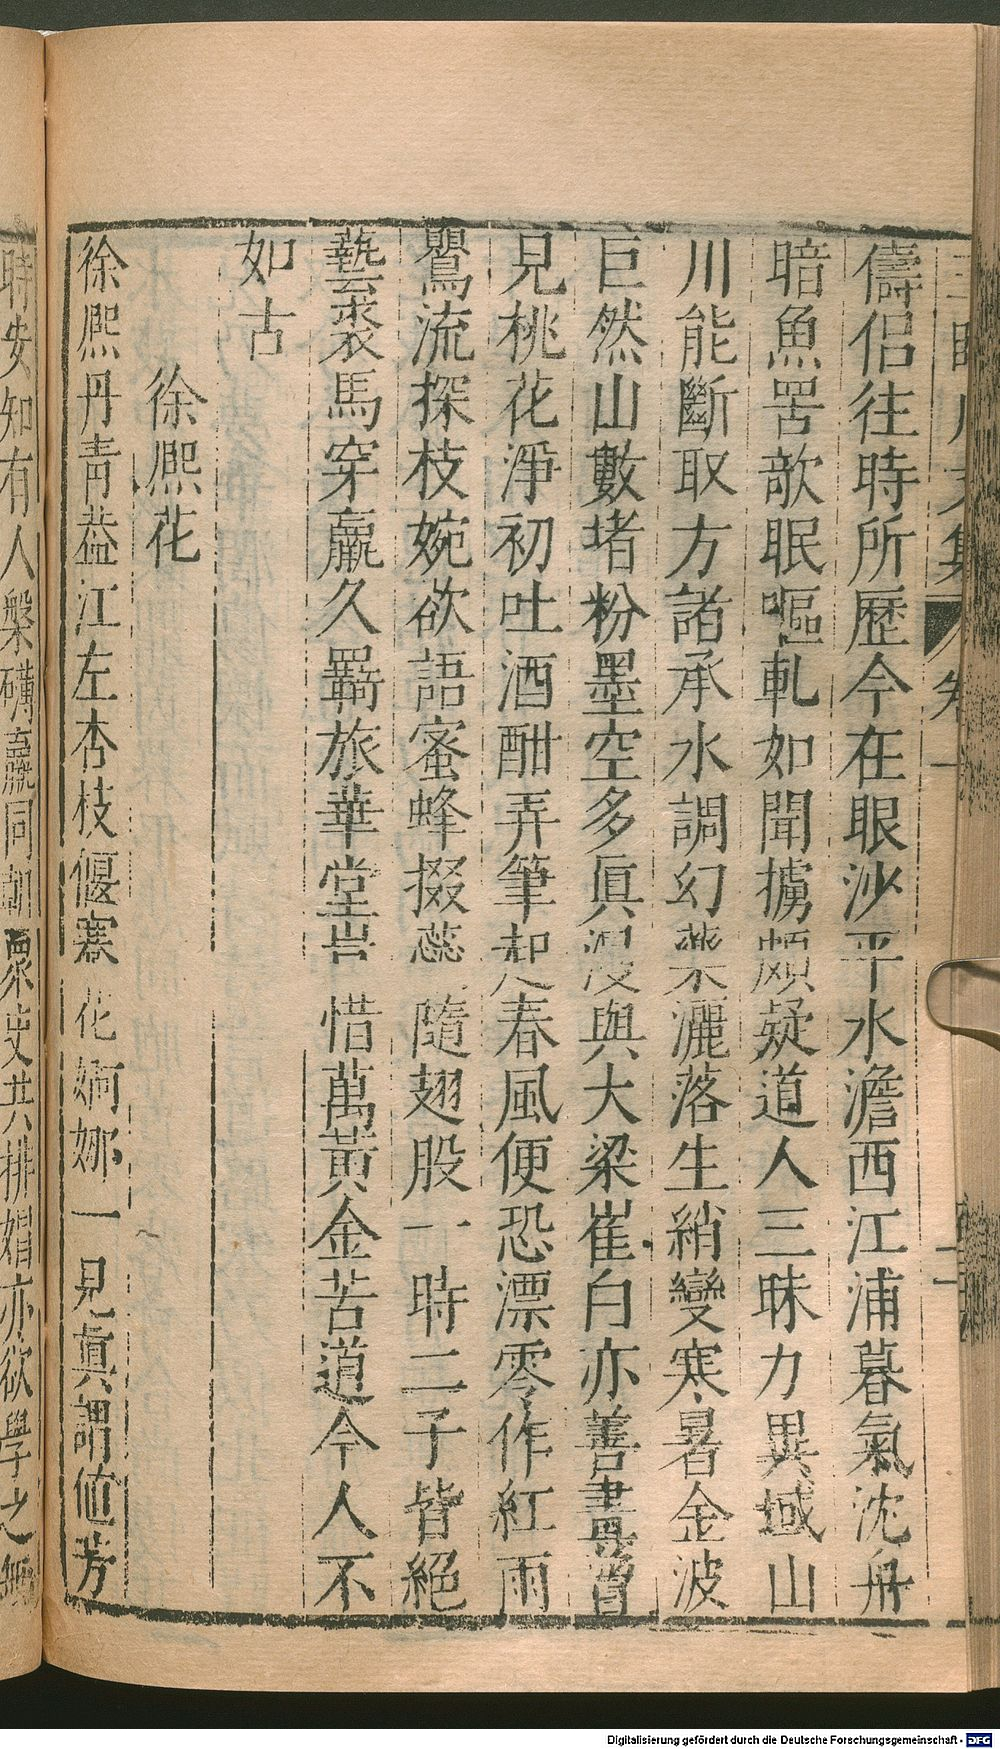 儔侶往時所歷今在眼沙平水澹西江浦暮氣沈舟
暗魚罟欹眠嘔軋如聞擄頗疑道人三昧力異域山
川能斷取方諸承水調幻藥灑落生綃變寒暑金波
巨然山數堵粉墨空多眞漫與大梁崔白亦善畫曾
見桃花淨初吐酒酣弄筆起春風便恐漂零作紅雨
鸎流探枝婉欲語蜜蜂掇蘂隨翅股一時二子皆絕
藝裘馬穿羸久羇旅華堂豈惜萬黃金苦道今人不
如古
徐熈花
徐熈丹靑葢江左杏枝偃蹇花婀娜一見眞謂値芳
時安知有人槃礴羸同朝衆史共排娼亦欲學之無
卷一
二
Digitalisierung gefördert durch die Deutsche Forschungsgemeinschaft - DFG